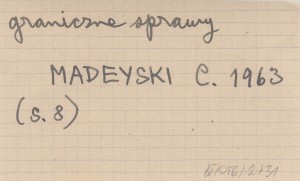 graniczne sprawy
MADEYSKI C. 1963
(s. 8)